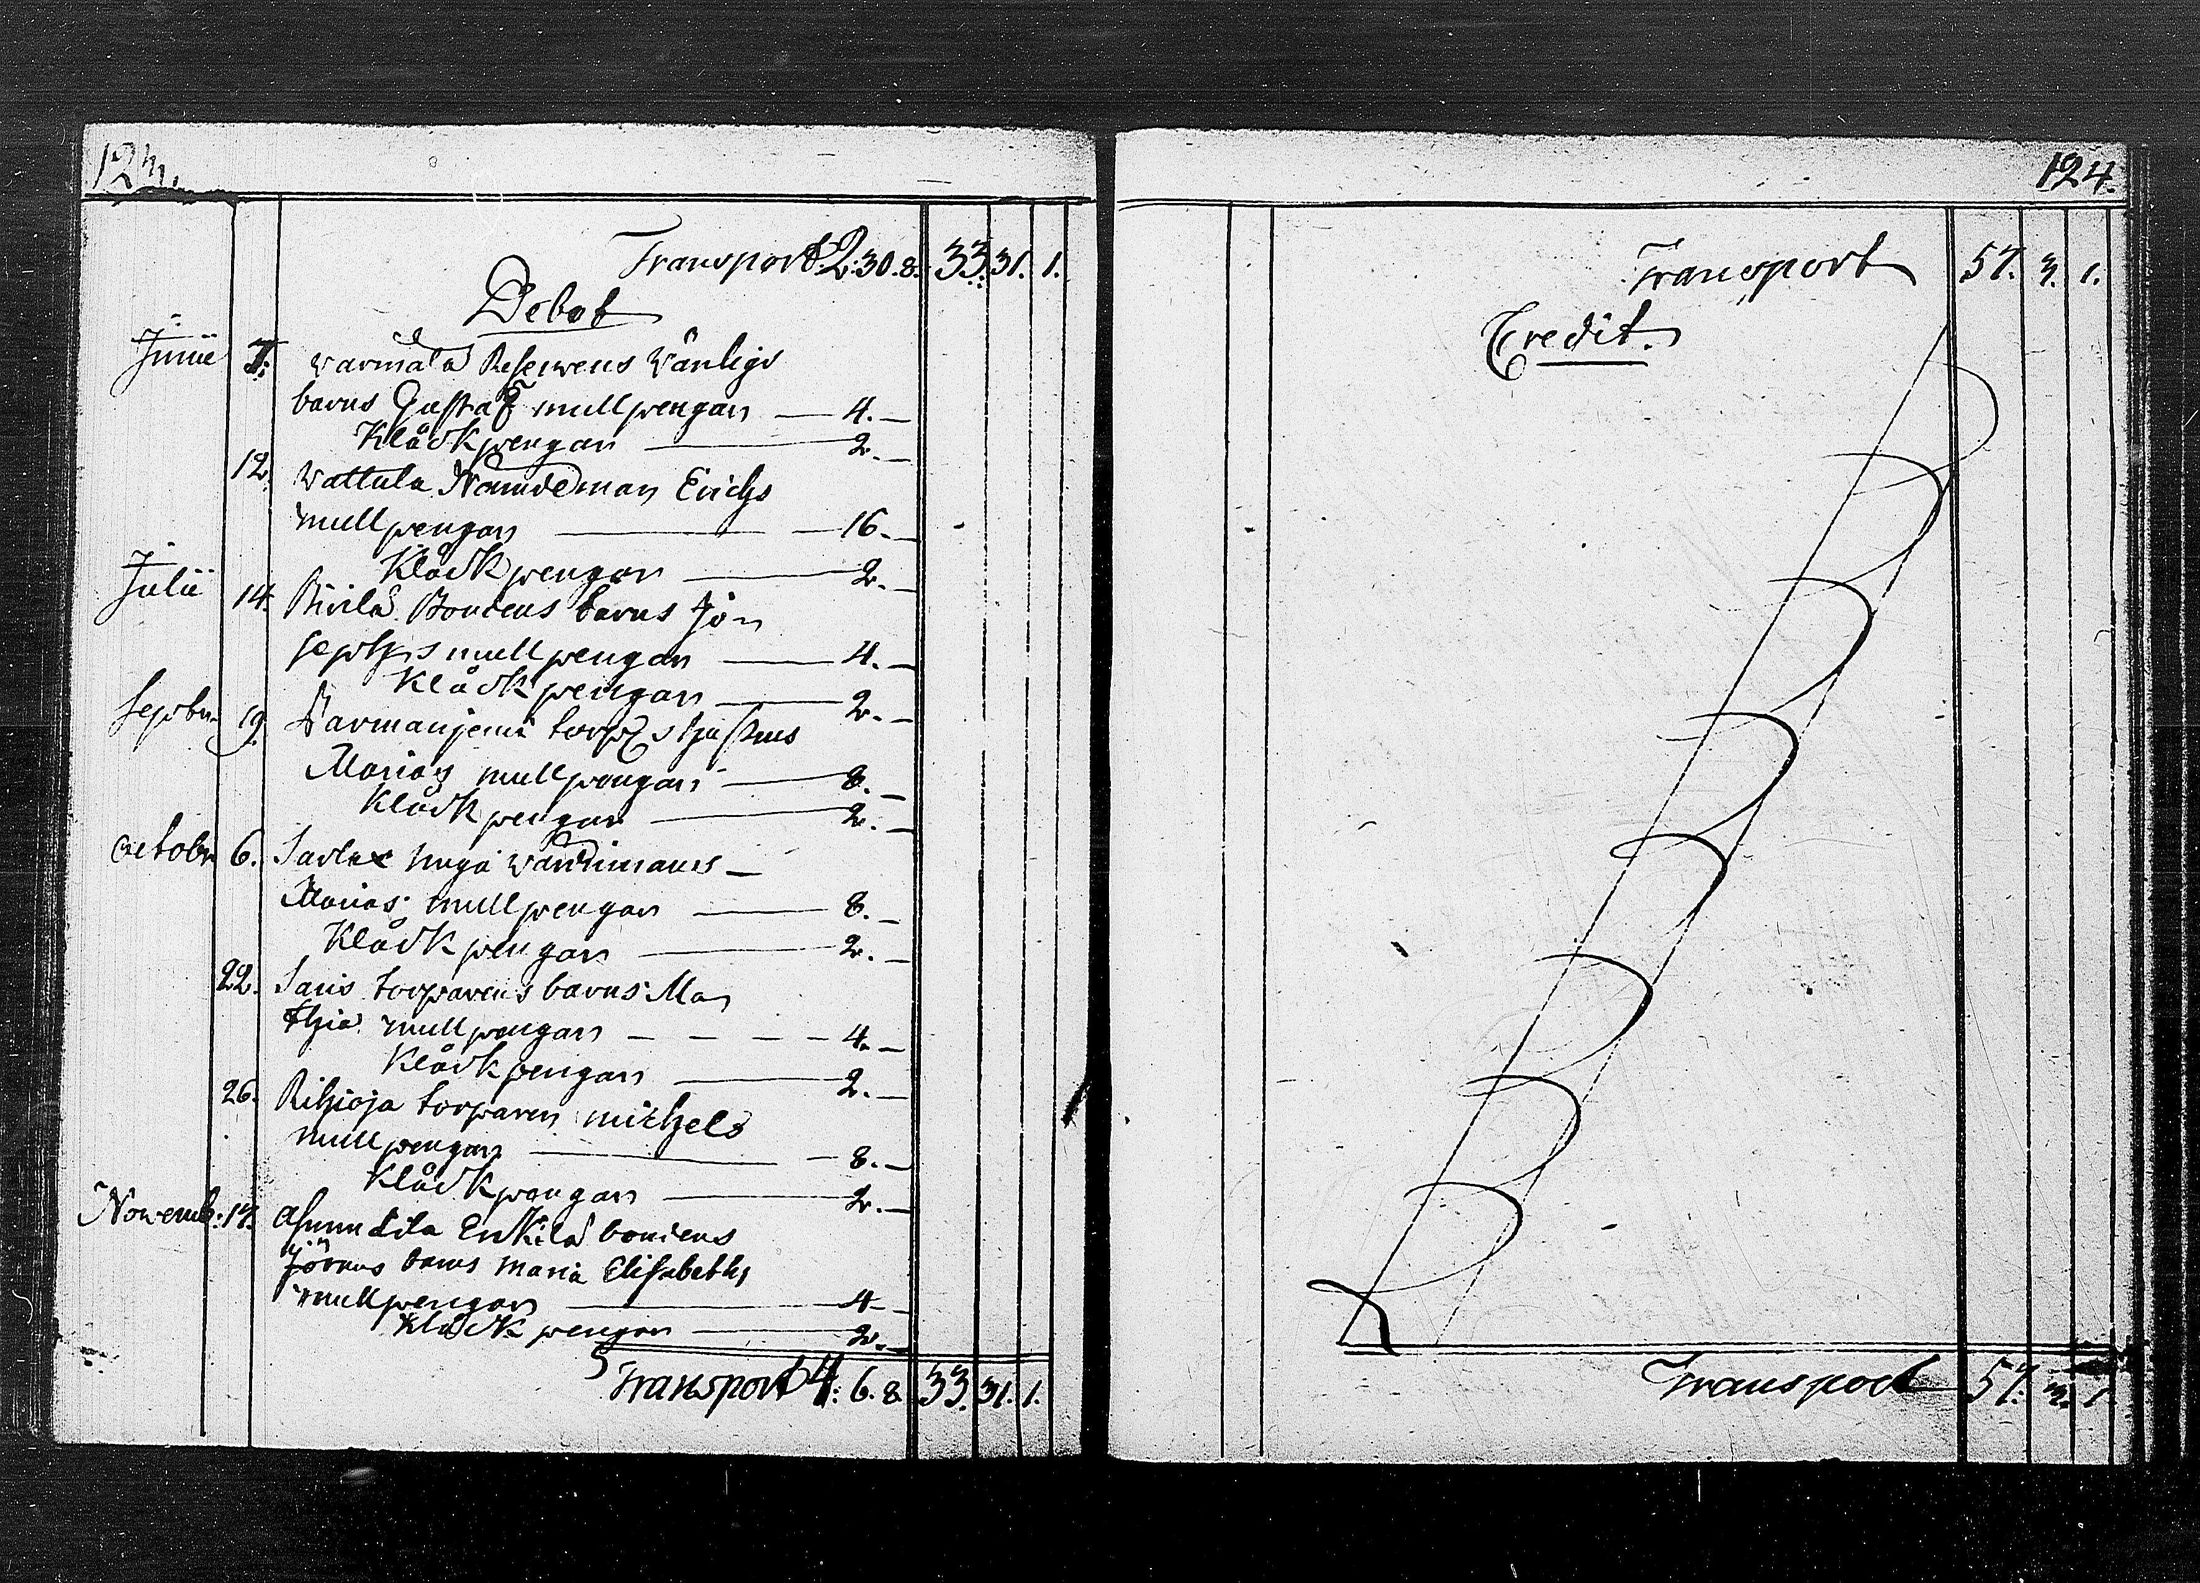 124.
Transport 2:30.8. 33. 31. 1.
Debet
Junii 7. Warmala Reserwens Wänligs
barns Gustaf mullpengar — 4. —
Klåckpengar — 2. —
12. Wattula Nämdeman Erichs
mullpengar — 16. —
Klåckpengar — 2. —
Julii 14. Bondens barns Jo-
sephs mullpengar — 4. —
Klåckpengar — 2. —
Septbr 19. torp
Marias mullpengar — 8. —
Klåckpengar — 2. —
Octobr 6.
Marias mullpengar — 8. —
Klåckpengar — 2. —
22. Saris torparens barns Ma-
thia mullpengar — 4. —
Klåckpengar — 2. —
26. Rihioja torparen Michels
mullpengar — 8. —
Klåckpengar — 2. —
Novemb: 17. Erkilä bondens
Jörans barns Maria Elisabeths
mullpengar — 4 —
Klåckpengar — 2. —
Transport 4: 6. 8. 33. 31. 1.
124.
Transport 57. 3. 1.
Credit.
Transport 57. 3. 1.